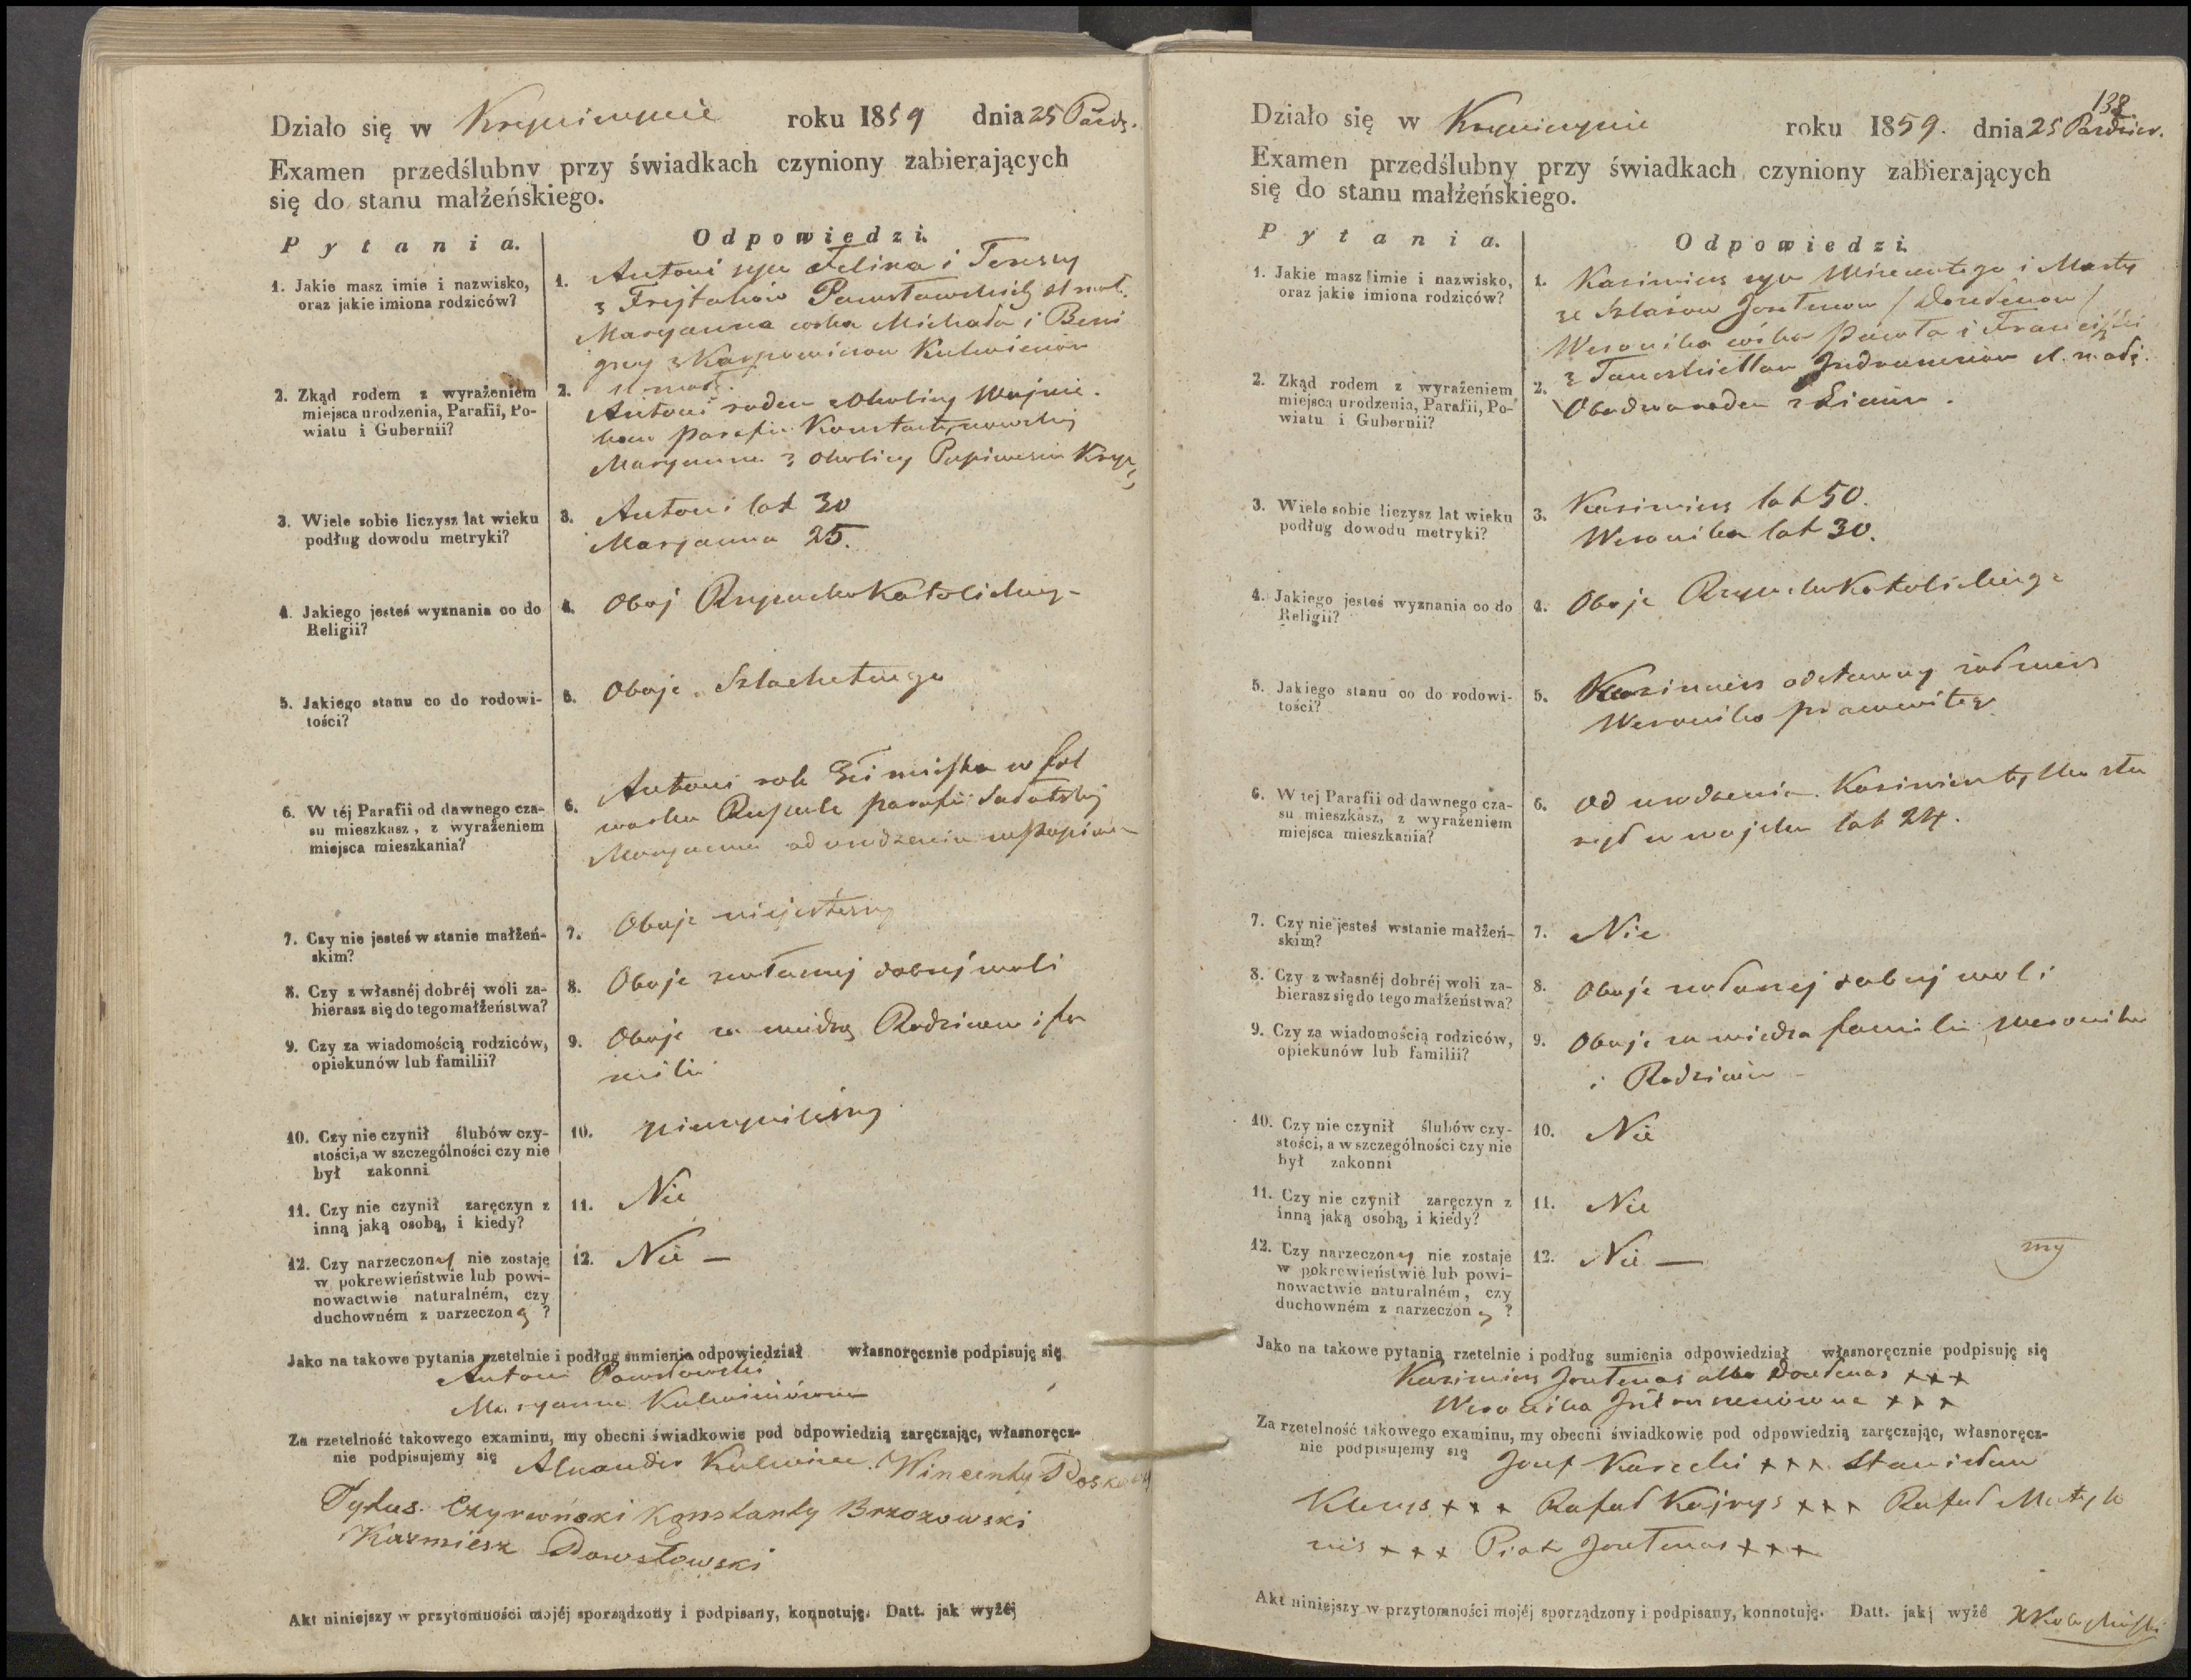 Działo się w roku 1859 dnia 25 Paźdz.
Examen przedślubny przy świadkach czyniony zabierających
się do stanu małżeńskiego.
Pytania.
Odpowiedzi.
1. Jakie masz imie i nazwisko,
oraz jakie imiona rodziców?
1. Antoni syn Felixa i Teresy
z Frejtaków Pawsłowskich
Maryanna córka Michała i Beni
gny z Karpowiczow Kulwiców
2. Zkąd rodem z wyrażeniem
miejsca urodzenia, Parafii, Po-
wiatu i Gubernii?
2. Antoni rodem z Okolicy
parafii Konstantynowskiej
Maryanna z Okolicy
3. Wiele sobie liczysz lat wieku
podług dowodu metryki?
3. Antoni lat 30
Maryanna 25.
4. Jakiego jesteś wyznania co do
Religii?
4. Oboj Rzymsko Katolickieg-
5. Jakiego stanu co do rodowi-
tości?
5. Oboje Szlachetnego
6. W téj Parafii od dawnego cza-
su mieszkasz, z wyrażeniem
miejsca mieszkania?
6. Antoni rok mieszka w fol
warku parafii
Maryanna od urodzenia
7. Czy nie jesteś w stanie małżeń-
skim?
7. Oboje niejesteśmy
8. Czy z własnéj dobréj woli za-
bierasz się do tego małżeństwa?
8. Oboje zwłasnej dobrej woli
9. Czy za wiadomością rodziców,
opiekunów lub familii?
9. Oboje za wiedzą Rodzicow i fa
milii
10. Czy nie czynił ślubów czy-
stości, a w szczególności czy nie
był zakonni
10. nieczyniliśmy
11. Czy nie czynił zaręczyn z
inną jaką osobą, i kiedy?
11. Nie
12. Czy narzeczony nie zostaje
w pokrewieństwie lub powi-
nowactwie naturalném, czy
duchowném z narzeczoną ?
12. Nie —
Jako na takowe pytania rzetelnie i podług sumienia odpowiedział własnoręcznie podpisuję się
Antoni Pawsłowski
Maryanna Kulwiciówna
Za rzetelność takowego examinu, my obecni świadkowie pod odpowiedzią zaręczając, własnoręcz-
nie podpisujemy się Alexander Kulwiec. Wincenty
Tytus. Czyrwoński Konstanty Brzozowski
Kazmiesz Pawsłowski
Akt niniejszy w przytomności mojéj sporządzony i podpisany, konnotuję. Datt. jak wyżéj
138
Działo się w roku 1859. dnia 25 Pazdzier.
Examen przedślubny przy świadkach czyniony zabierających
się do stanu małżeńskiego.
Pytania.
Odpowiedzi.
1. Jakie masz imie i nazwisko,
oraz jakie imiona rodziców?
1. Kazimierz syn Wincentego i Marty
ze Jontenow / Doudenow /
Weronika córka Pawła i Franciszki
z
2. Zkąd rodem z wyrażeniem
miejsca urodzenia, Parafii, Po-
wiatu i Gubernii?
2. Obadwa rodem z
3. Wiele sobie liczysz lat wieku
podług dowodu metryki?
3. Kazimierz lat 50.
Weronika lat 30.
4. Jakiego jesteś wyznania co do
Religii?
4. Oboje Rzymsko Katolickiego
5. Jakiego stanu co do rodowi-
tości?
5. Kazimierz odstawny żołnierz
Weronika
6. W tej Parafii od dawnego cza-
su mieszkasz, z wyrażeniem
miejsca mieszkania?
6. Od urodzenia. Kazimierz tylko
w wojsku lat 24.
7. Czy nie jesteś wstanie małżeń-
skim?
7. Nie
8. Czy z własnéj dobréj woli za-
bierasz się do tego małżeństwa?
8. Oboje dobrej woli
9. Czy za wiadomością rodziców,
opiekunów lub familii?
9. Oboje za wiedzą familii Weronika
i Rodziców
10. Czy nie czynił ślubów czy-
stości, a w szczególności czy nie
był zakonni
10. Nie
11. Czy nie czynił zaręczyn z
inną jaką osobą, i kiedy?
11. Nie
12. Czy narzeczony nie zostaje
w pokrewieństwie lub powi-
nowactwie naturalném, czy
duchowném z narzeczoną ?
12. Nie —
Jako na takowe pytania rzetelnie i podług sumienia odpowiedział własnoręcznie podpisuję się
Kazimierz Jontenas albo Doudenas +++
Weronika +++
Za rzetelność takowego examinu, my obecni świadkowie pod odpowiedzią zaręczając, własnoręcz-
nie podpisujemy się Jozef Karecki +++ Stanisław
+++ Rafał Kajrys +++ Rafał
+++ Piotr Jontenas +++
Akt niniejszy w przytomności mojéj sporządzony i podpisany, konnotuję. Datt. jak wyżé